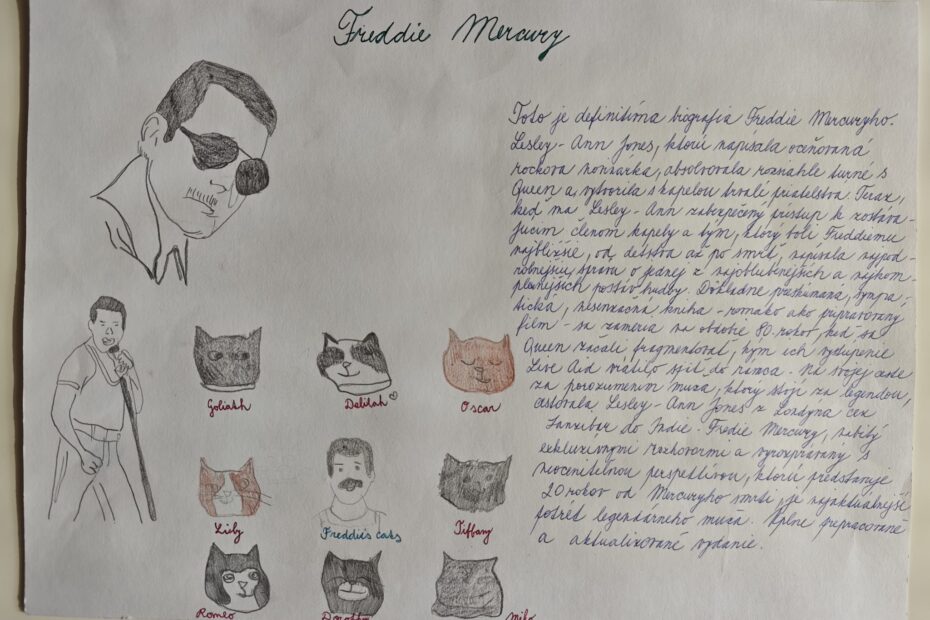 Freddie Mercury
Toto je definitíma biografia Freddie Mercuryho.
Lesley-Ann Jones, ktorú napísala oceňovaná
rocková novinárka, absolvovala rozsiahle turné s
Queen a vytvorila s kapelou trvalé priatelstva. Teraz,
keď má Lesley-Ann zabezpečený prístup k zostáva-
júcim členom kapely a tým, ktorý boli Freddiemu
najbližšie, od detstva až po smrť, napísala najpod-
robnejšiu správu o jednej z najoblubenejších a najkom-
plexnejších postáv hudby. Dôkladne preskúmaná, sympa-
tická, nesenzačná kniha - romako ako pripravovaný
film - sa zameria na obdobie 80. rokov, keď sa
Queen začali fragmentovať, kým ich vystupenie
Live Aid vrátilo späť do
Na svojej ceste
za porozumením muža, ktorý stojí za legendou,
cestovala Lesley-Ann Jones z Londýna cez
Zanzibar do Indie. Fredie Mercury, nabitý
exkluzívnymi rozhovormi a vyrozprávaný s
neoceniteľnou perspektívou, ktorú predstavuje
20 rokov od Mercuryho smrti, je najaktuálnejší
potrét legendárneho muža. Úplne prepracované
a aktualizované vydanie.
Goliath
Delilah
Oscar
Lily
Freddie's cats
Tiffany
Romeo
Miko